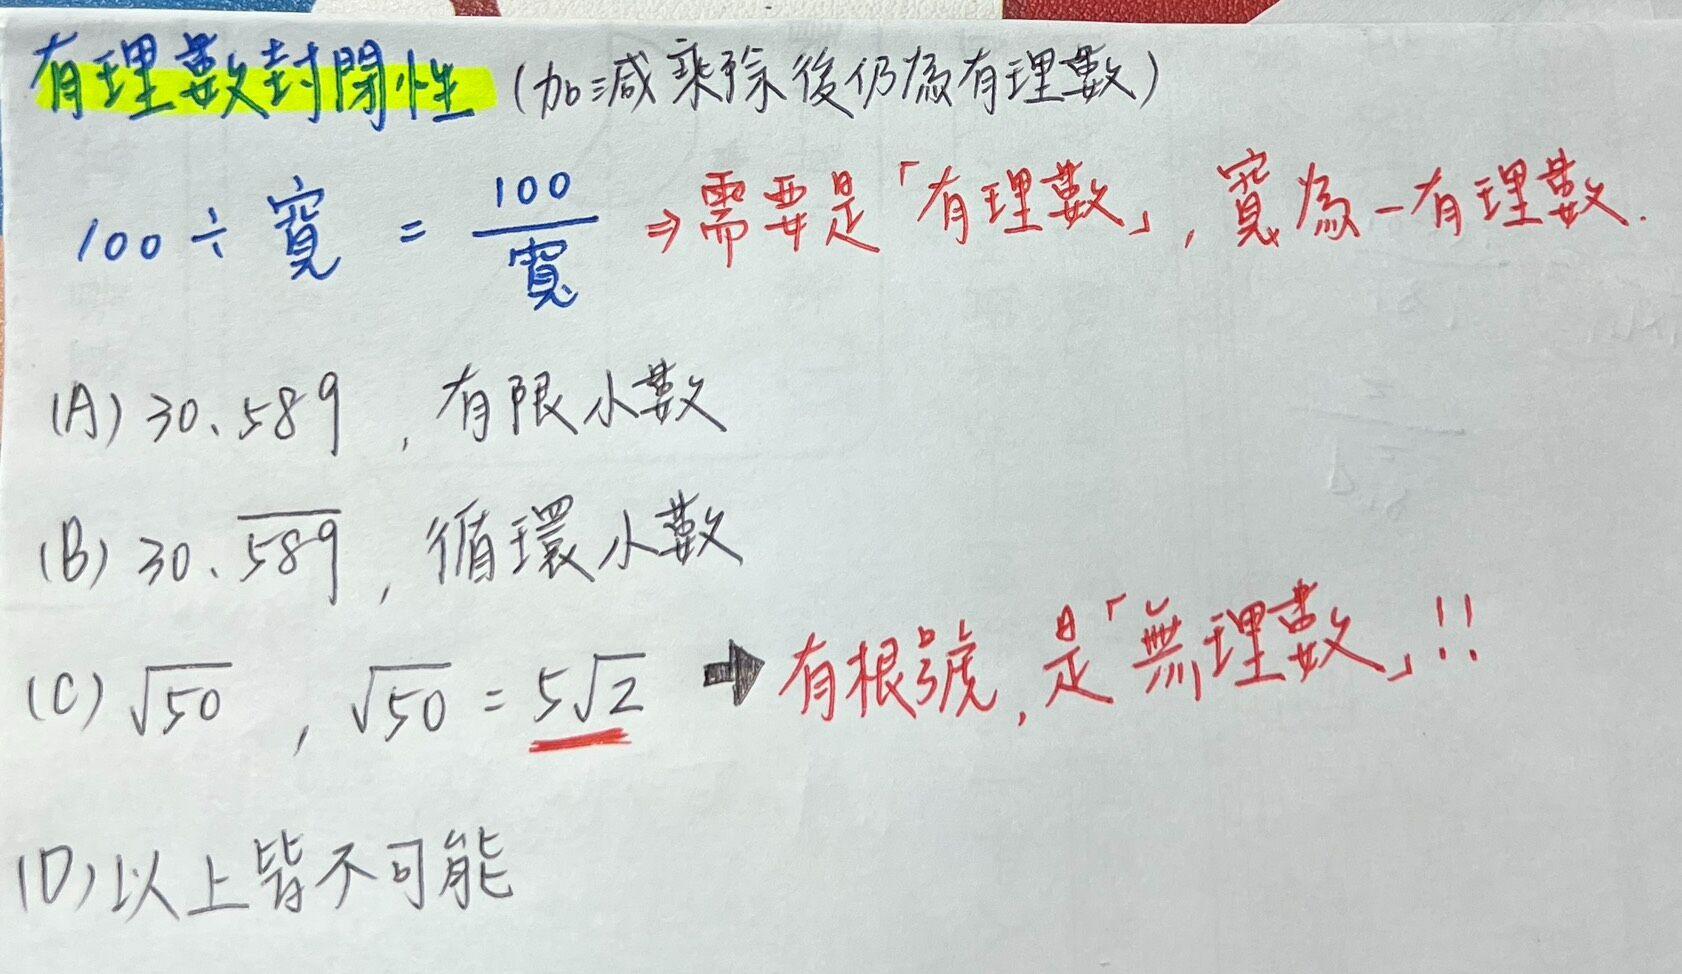 有理數封閉性 (加減乘除後仍為有理數)
100 ÷ 寬 = \frac{100}{寬} ⇒ 需要是「有理數」, 寬為一有理數.
(A) 30.589 , 有限小數
(B) 30.\overline{589} , 循環小數
(C) √50 , √50 = 5√2 ➡ 有根號, 是「無理數」!!
(D) 以上皆不可能